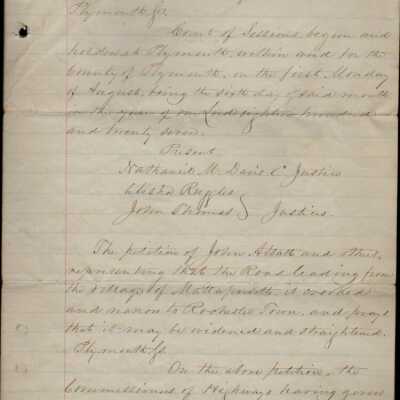 Plymouth ss.
Court of Sessions begun and
holden at Plymouth, within and for the
County of Plymouth, on the first Monday
of August, being the sixth day of said month
in the year of our Lord eighteen hundred
and twenty seven.
Present
Nathaniel M. Davis C. Justice
Elisha Ruggles
John Thomas } Justices
The petition of John and others
representing that the Road leading from
the village of Mattapoisett is crooked
and narrow to Rochester Town, and prays
that it may be widened and straightened.
Plymouth ss.
On the above petition, the
Commissioners of Highways having given